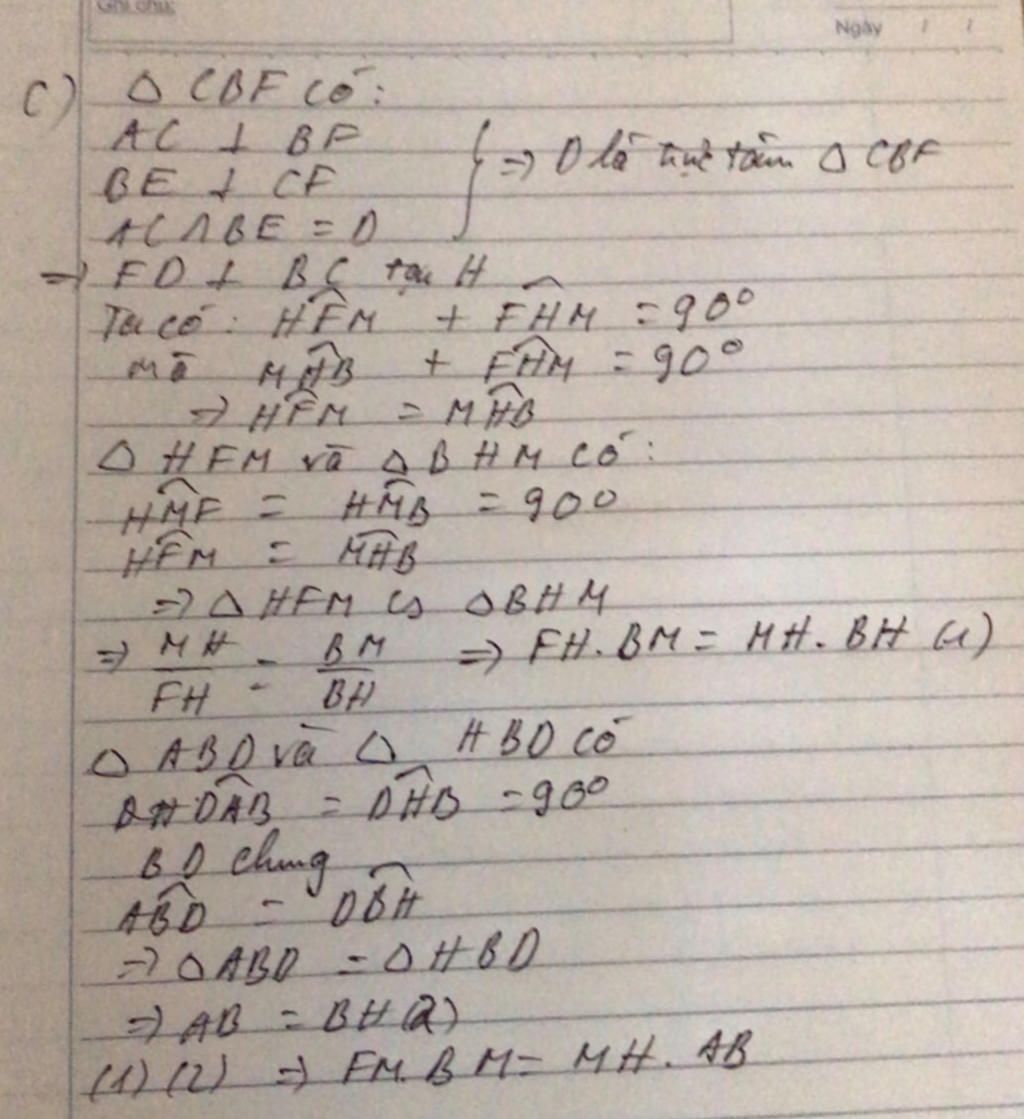 Ghi chú:
Ngày / /
c) Δ CBF có:
AC ⊥ BF
BE ⊥ CF
AC∩BE = D
} => D là trực tâm Δ CBF
=> FD ⊥ BC tại H
Ta có: HF̂M + FĤM = 90°
mà MĤB + FĤM = 90°
=> HF̂M = MĤB
Δ HFM và Δ BHM có:
HM̂F = HM̂B = 90°
HF̂M = MĤB
=> Δ HFM ∽ Δ BHM
=> MH/FH = BM/BH => FH. BM = MH. BH (1)
Δ ABD và Δ HBD có
DÂB = DĤB = 90°
BD chung
AB̂D = DB̂H
=> Δ ABD = Δ HBD
=> AB = BH (2)
(1) (2) => FM. BM = MH. AB